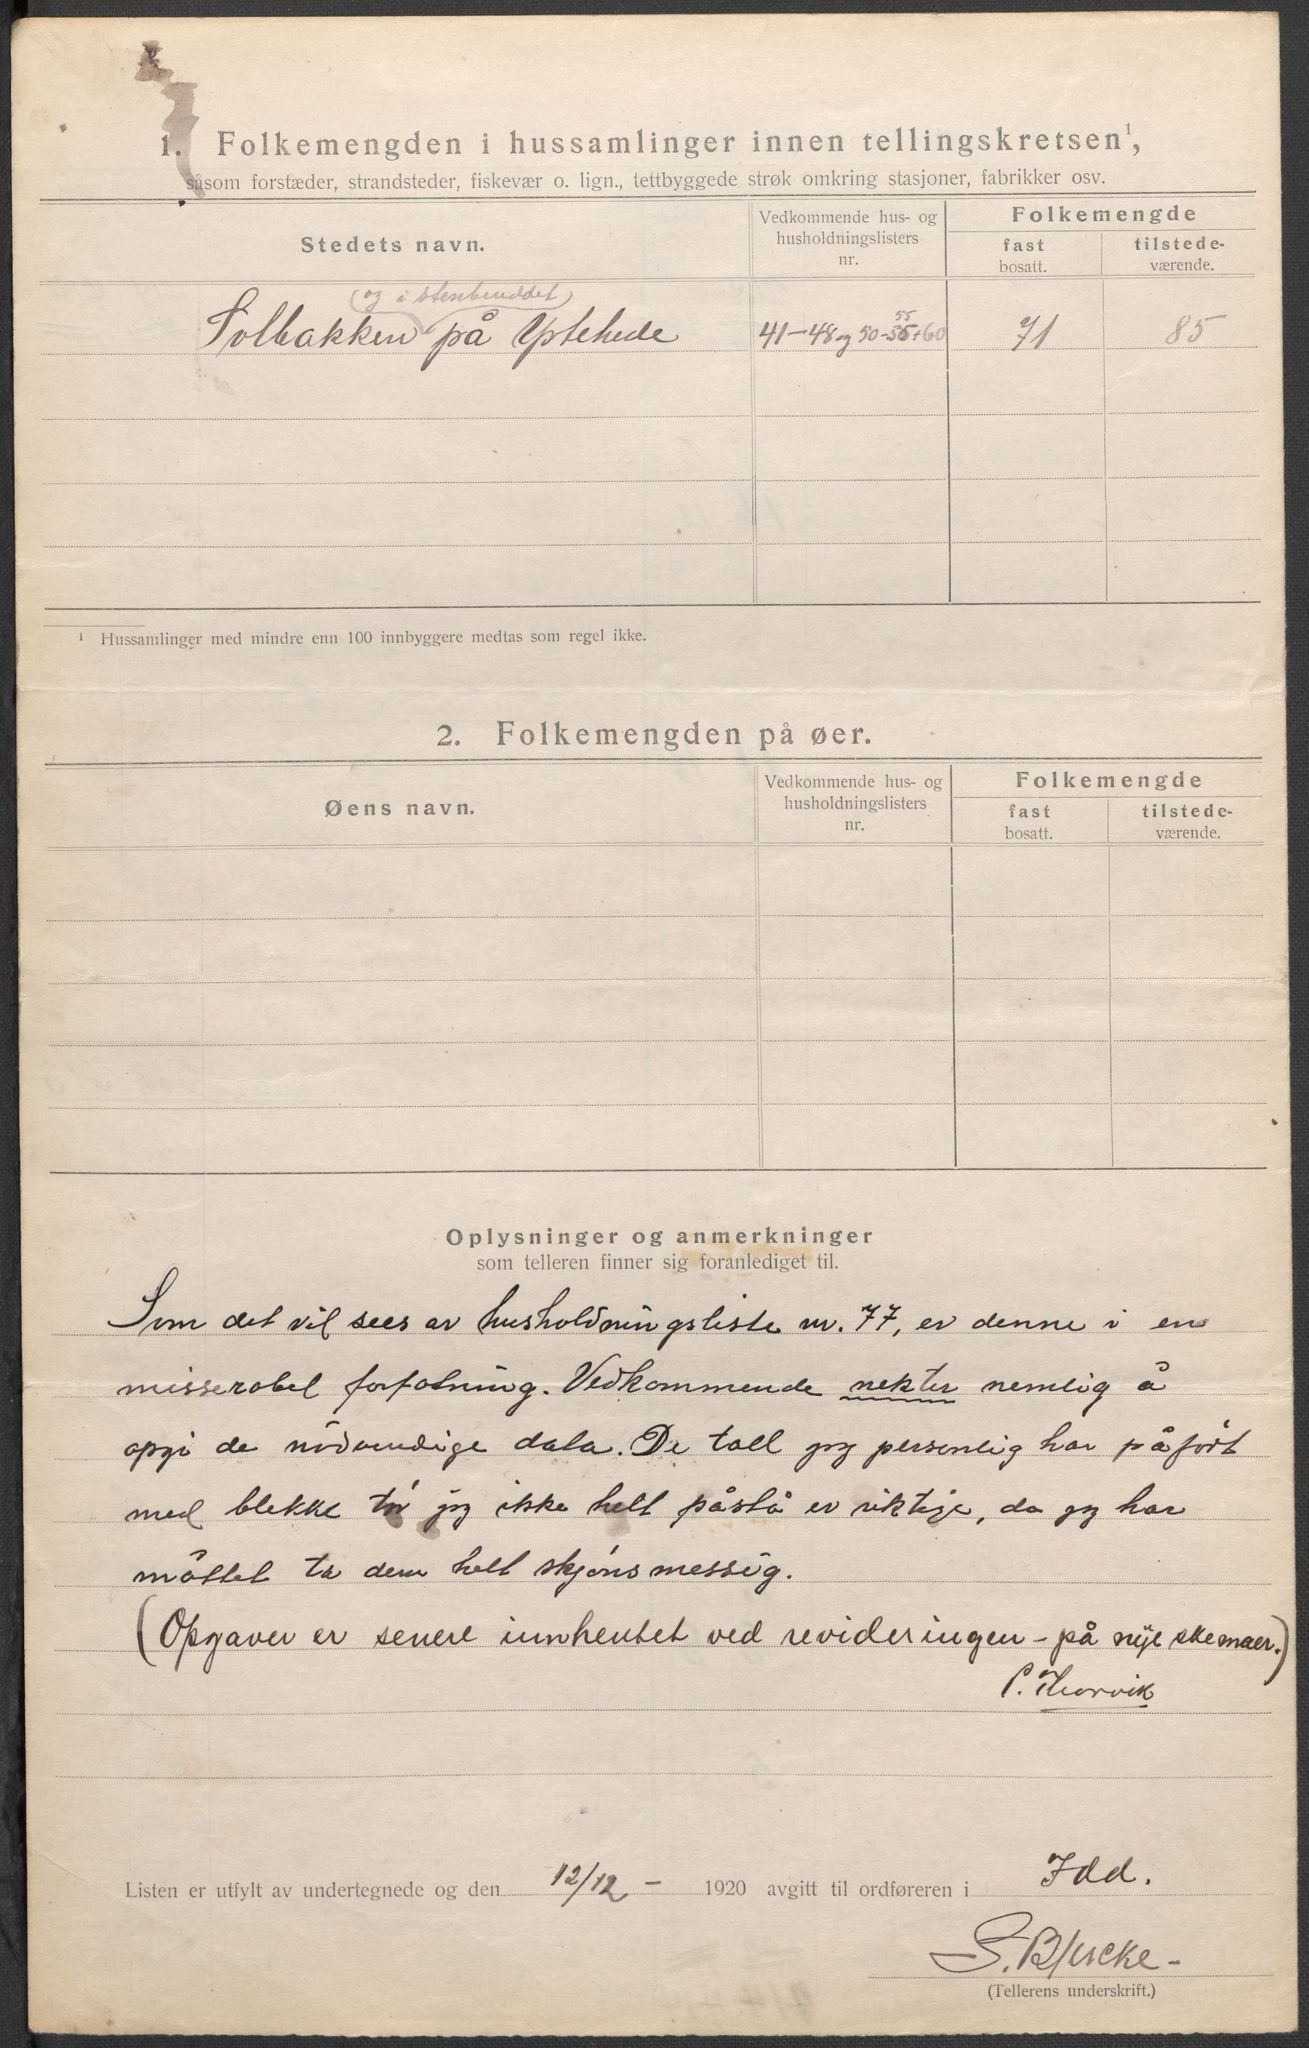 1. Folkemengden i hussamlinger innen tellingskretsen¹,
såsom forstæder, strandsteder, fiskevær o. lign., tettbyggede strøk omkring stasjoner, fabrikker osv.
Stedets navn.
Vedkommende hus- og
husholdningslisters
nr.
Folkemengde
fast
bosatt.
tilstede-
værende.
(og i stenbruddet)
Solbakken på Ystehede
41-48 og 50-55+60
55
71
85
¹ Hussamlinger med mindre enn 100 innbyggere medtas som regel ikke.
2. Folkemengden på øer.
Øens navn.
Vedkommende hus- og
husholdningslisters
nr.
Folkemengde
fast
bosatt.
tilstede-
værende.
Oplysninger og anmerkninger
som telleren finner sig foranlediget til.
Som det vil sees av husholdningsliste nr. 77, er denne i en
misserabel forfatning. Vedkommende nekter nemlig å
opgi de nödvendige data. De tall jeg personlig har påfört
med blekke tör jeg ikke helt påstå er riktige, da jeg har
måttet ta dem helt skjönsmessig.
(Opgaver er senere innhentet ved revideringen - på nye skemaer.)
P. Thorvik
Listen er utfylt av undertegnede og den 12/12 - 1920 avgitt til ordføreren i Idd.
S. Bjercke -
(Tellerens underskrift.)